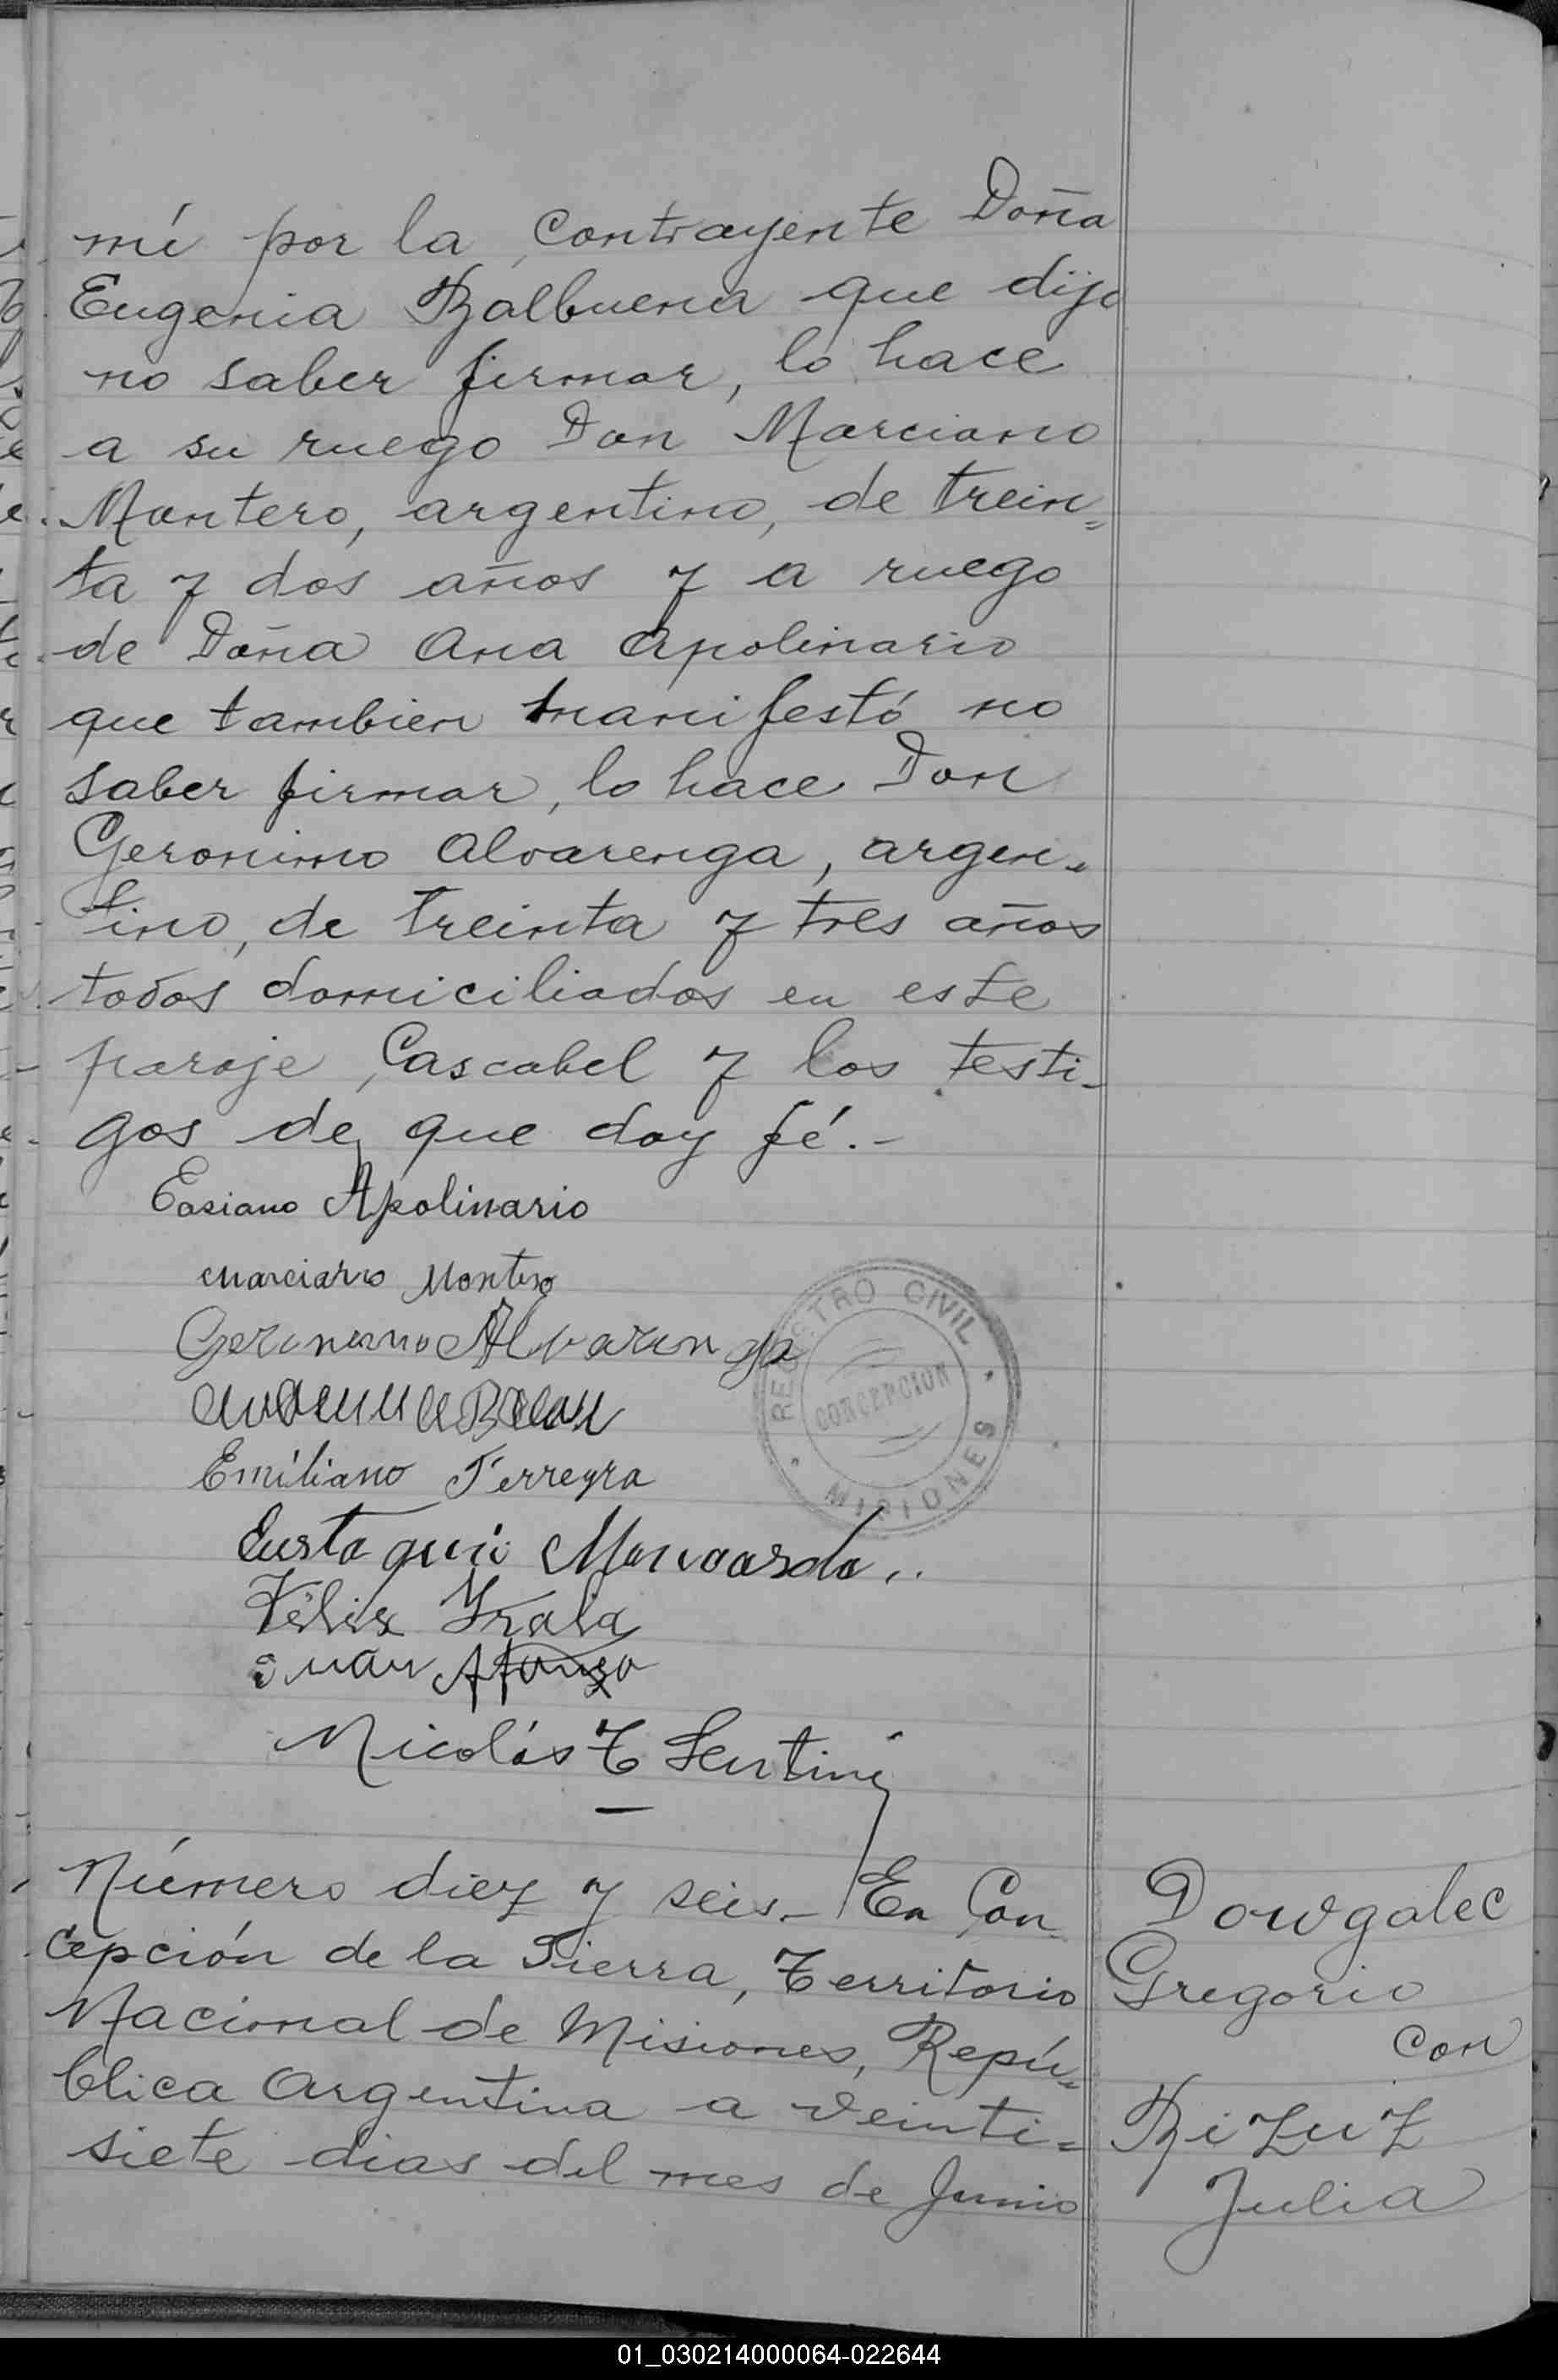 mí por la contrayente Doña
Eugenia Balbuena que dijo
no saber firmar, lo hace
a su ruego Don Marciano
Montero, argentino, de trein=
ta y dos años y a ruego
de Doña Ana Apolinario
que tambien manifestó no
saber firmar, lo hace Don
Geronimo Alvarenga, argen-
tino, de treinta y tres años
todos domiciliados en este
paraje Cascabel y los testi-
gos de que doy fé.-
Casiano Apolinario
Marciano Montero
Geronimo Alvarenga
Emiliano Ferreyra
Eustaquio
Félix Irala
Juan Afonzo
Nicolás T Sentiní
REGISTRO CIVIL
CONCEPCION
MISIONES
Número diez y seis.- En Con-
cepción de la Sierra, Territorio
Nacional de Misiones, Repú-
blica Argentina a veinti=
siete dias del mes de Junio
Dowgalec
Gregorio
con
Bizuz
Julia
01_030214000064-022644